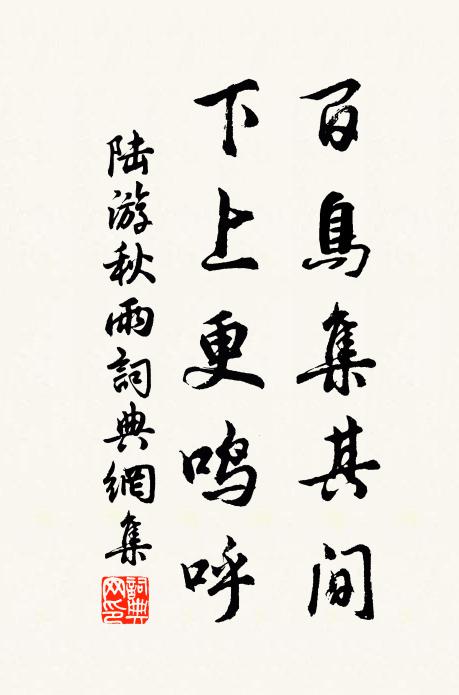 百鳥集其間
下上更鳴呼
陆游秋雨詞典網集
詞典网印